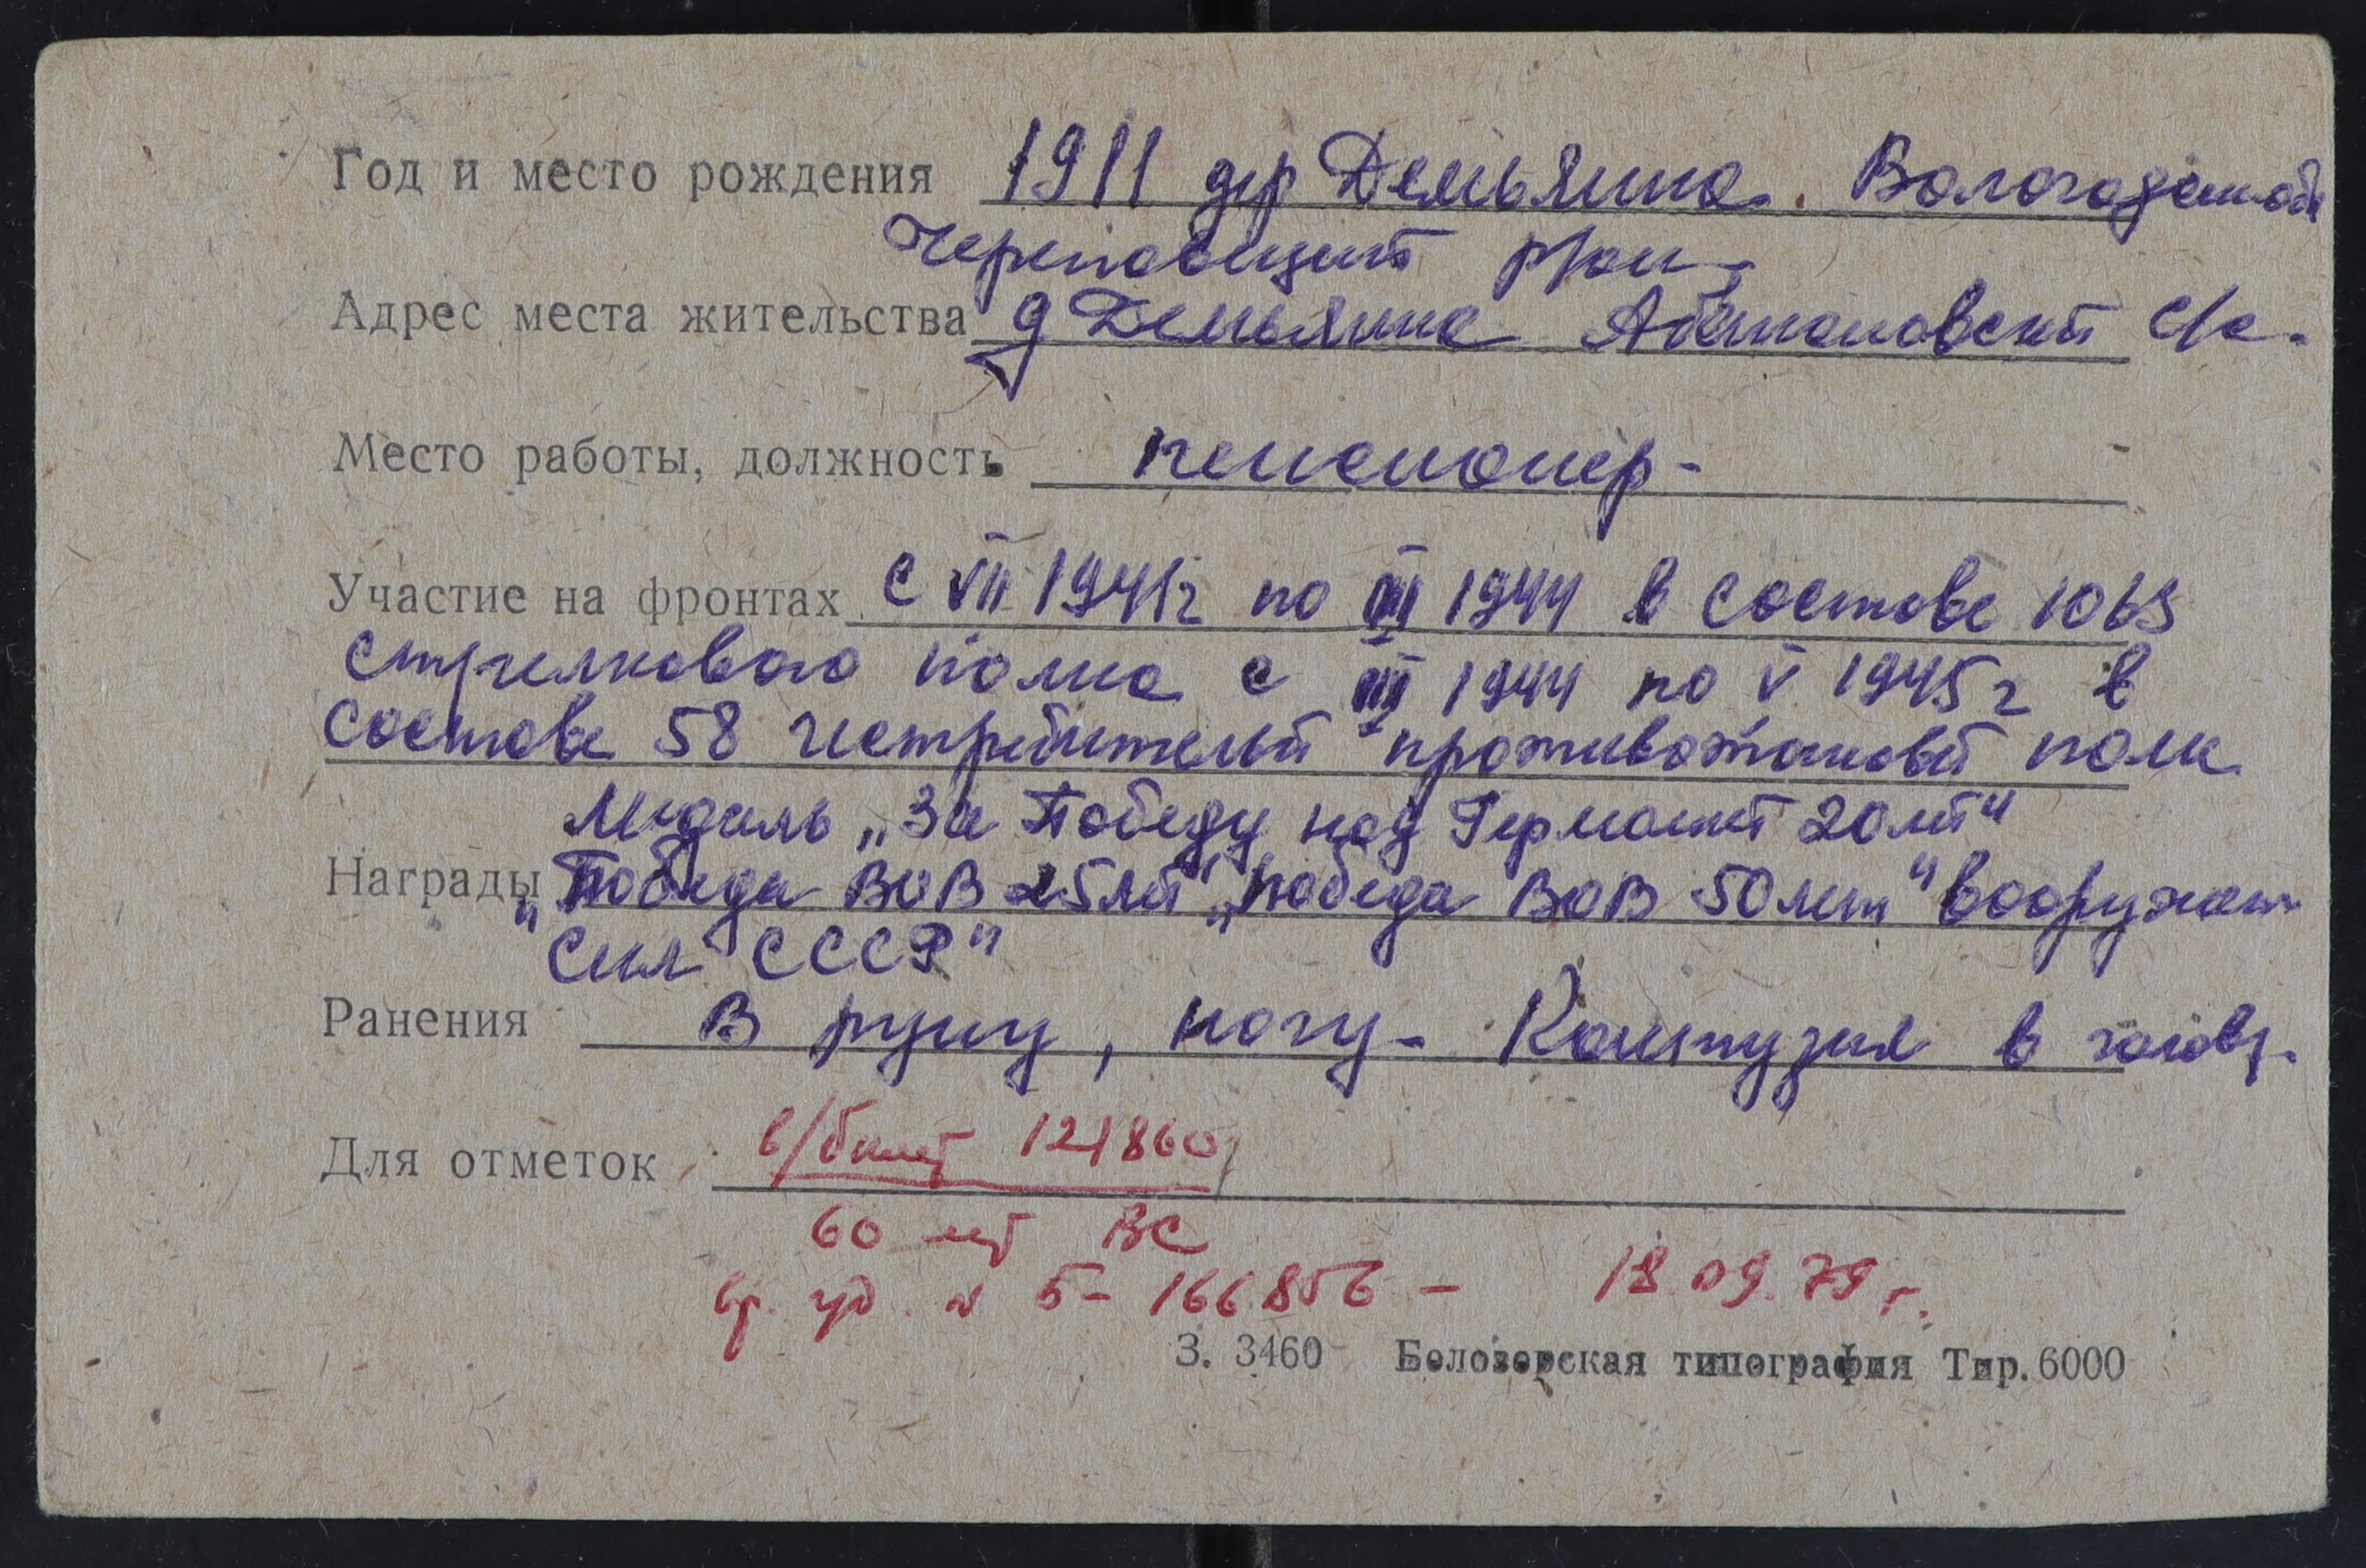 Год и место рождения 1911 дер Демьянка. Вологодск об
Череповецкий р/он
Адрес места жительства д Демьянка Абакановский с/с.
Место работы, должность пенсионер-
Участие на фронтах С VII 1941г по III 1944 в составе 1063
стрелкового полка с III 1944 по V 1945г в
составе 58 истребительй противотанковй полк
Медаль „За Победу над Германией 20 лет"
Награды „Победа ВОВ 25 лет" „Победа ВОВ 50 лет" вооружен
Сил СССР"
Ранения В руку, ногу- Контузия в голову.
Для отметок в/билет 121860
60 лет ВС
вр. уд. № Б- 166856 - 18.09.79 г.
З. 3460 Белозерская типография Тир. 6000